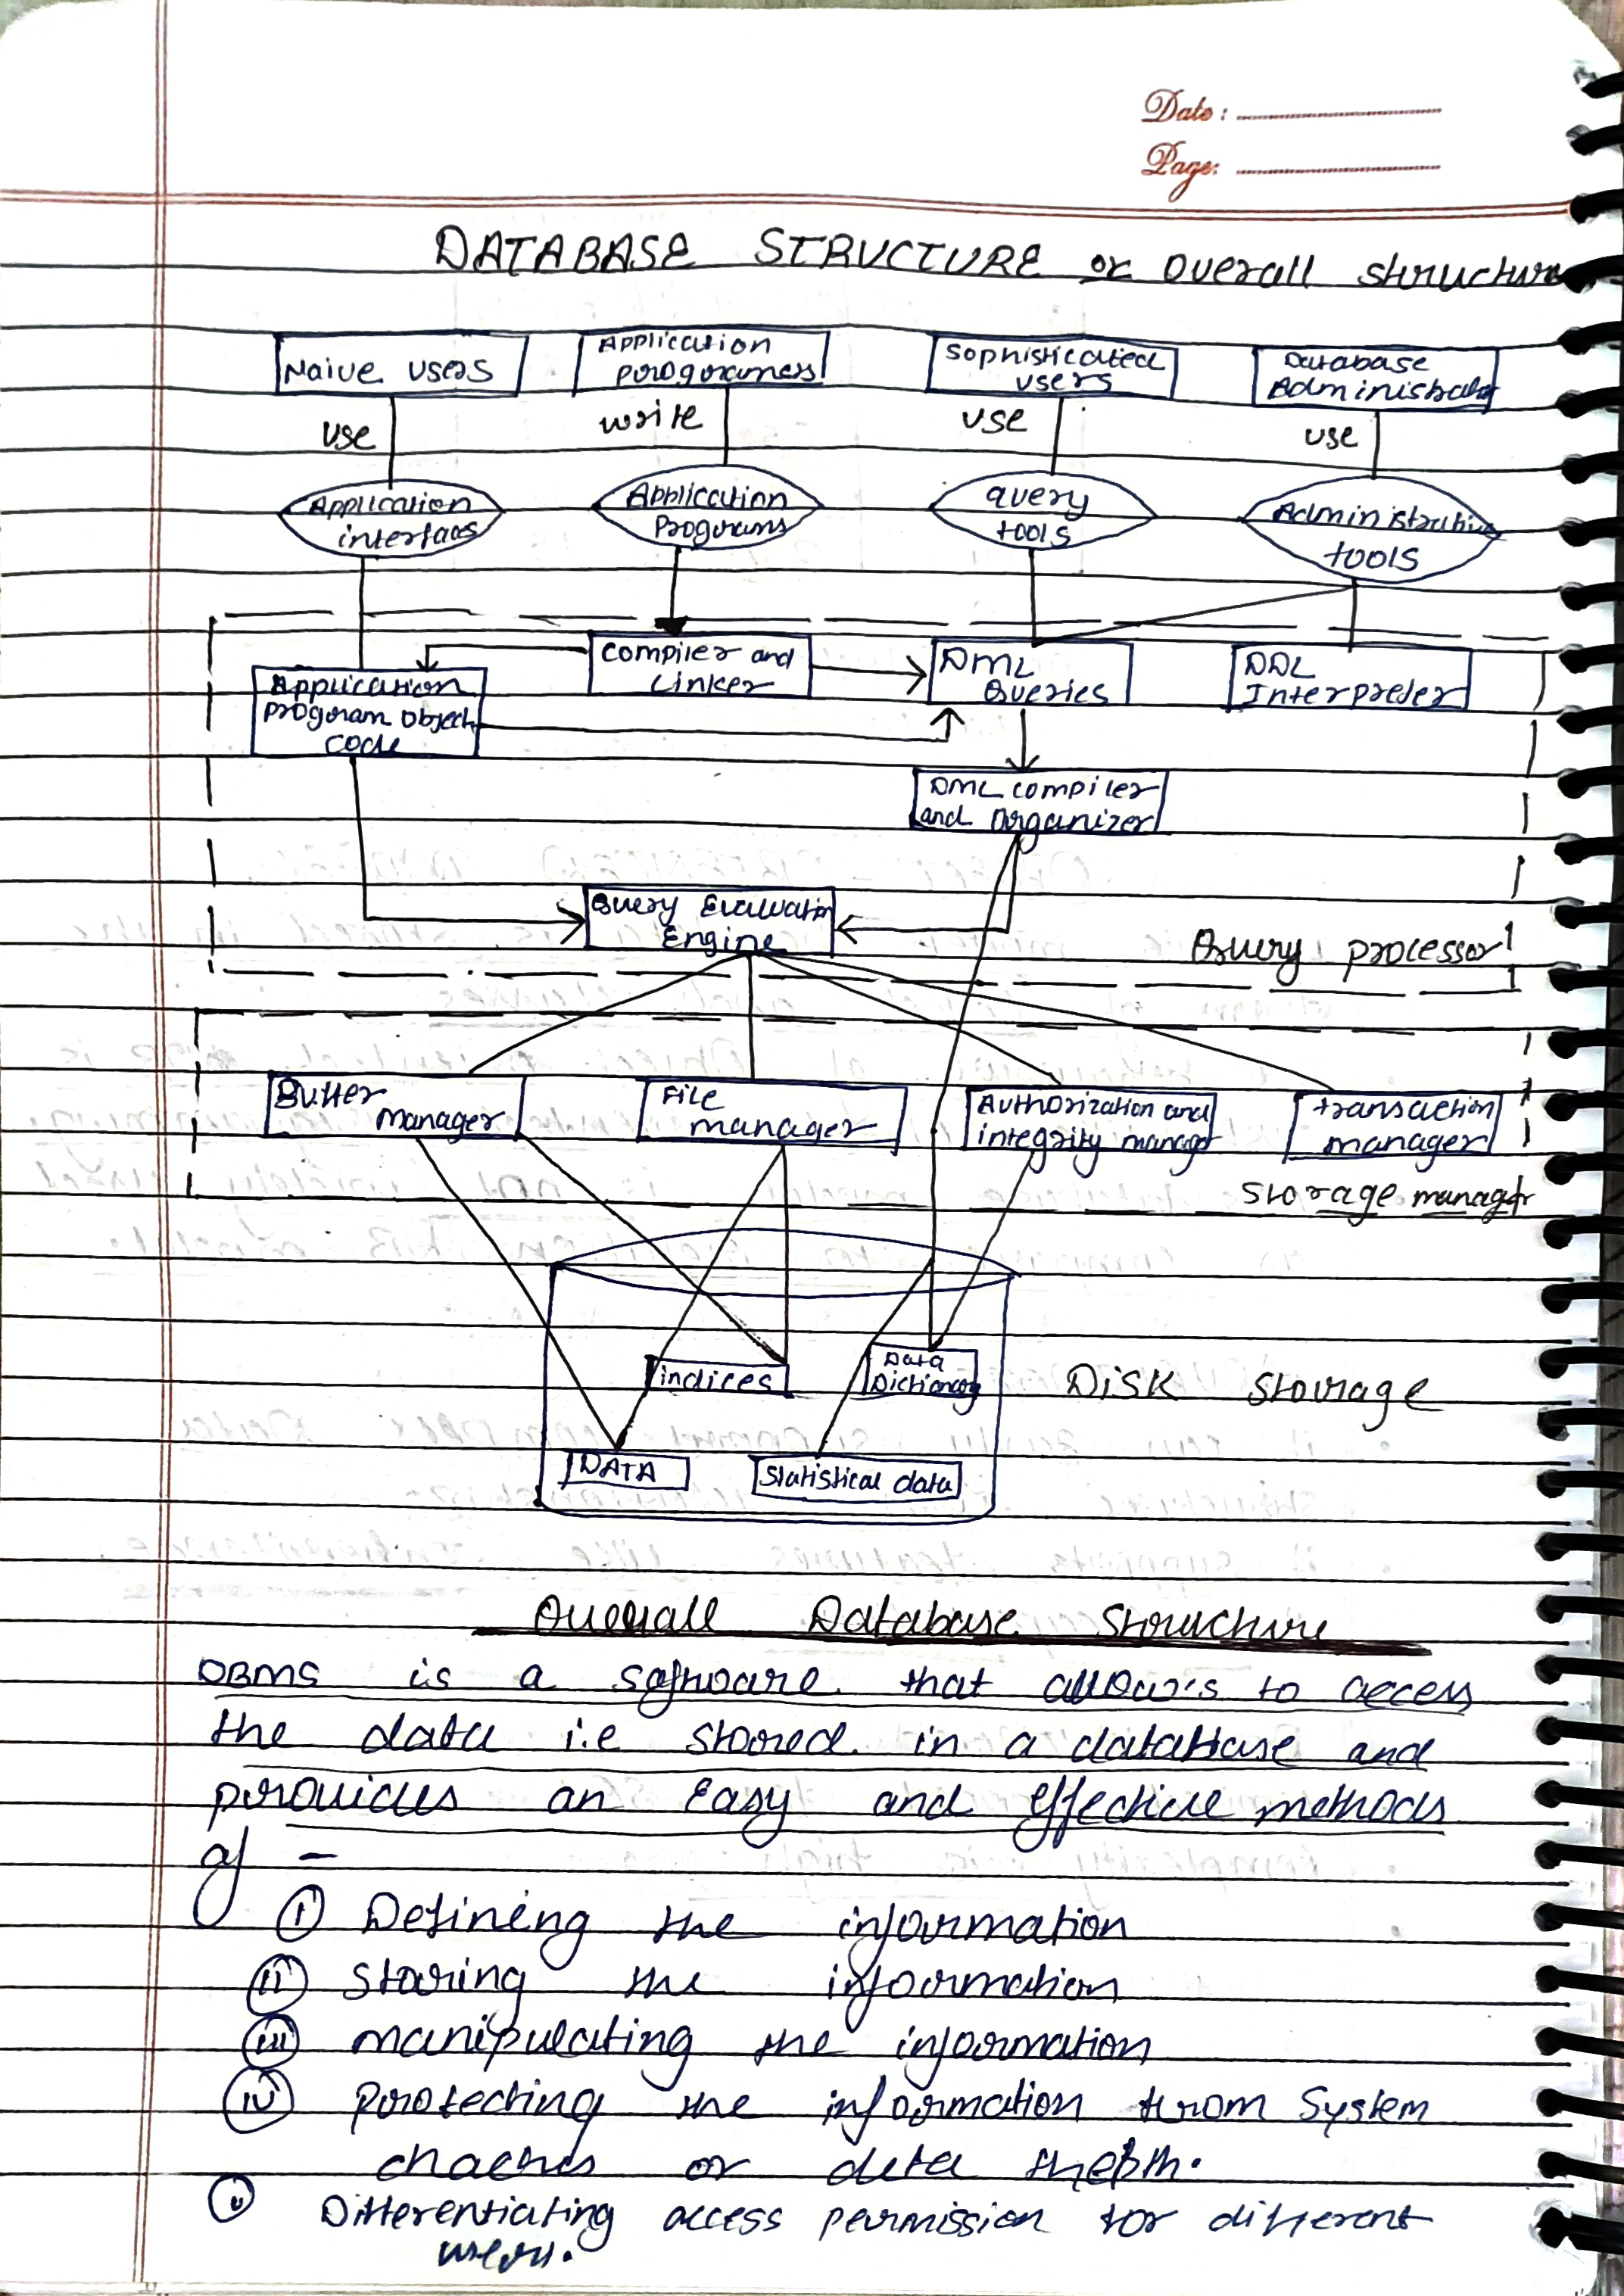 Date :
Page:
DATABASE STRUCTURE or overall structure
Naive users
Application
programmers
Sophisticated
users
Database
Administrator
use
write
use
use
Application
interfaces
Application
programs
query
tools
Administrative
tools
Compiler and
Linker
DML
Queries
DDL
Interpreter
Application
program object
code
DML compiler
and organizer
Query Evaluation
Engine
Query processor
Buffer
manager
File
manager
Authorization and
integrity manager
transaction
manager
Storage manager
indices
Data
Dictionary
Disk storage
DATA
Statistical data
Overall Database Structure
DBMS is a software that allows to access
the data i.e stored in a database and
provides an Easy and effective methods
of -
(i) Defining the information
(ii) storing the information
(iii) manipulating the information
(iv) protecting the information from System
or data
(v) Differentiating access permission for different
users.